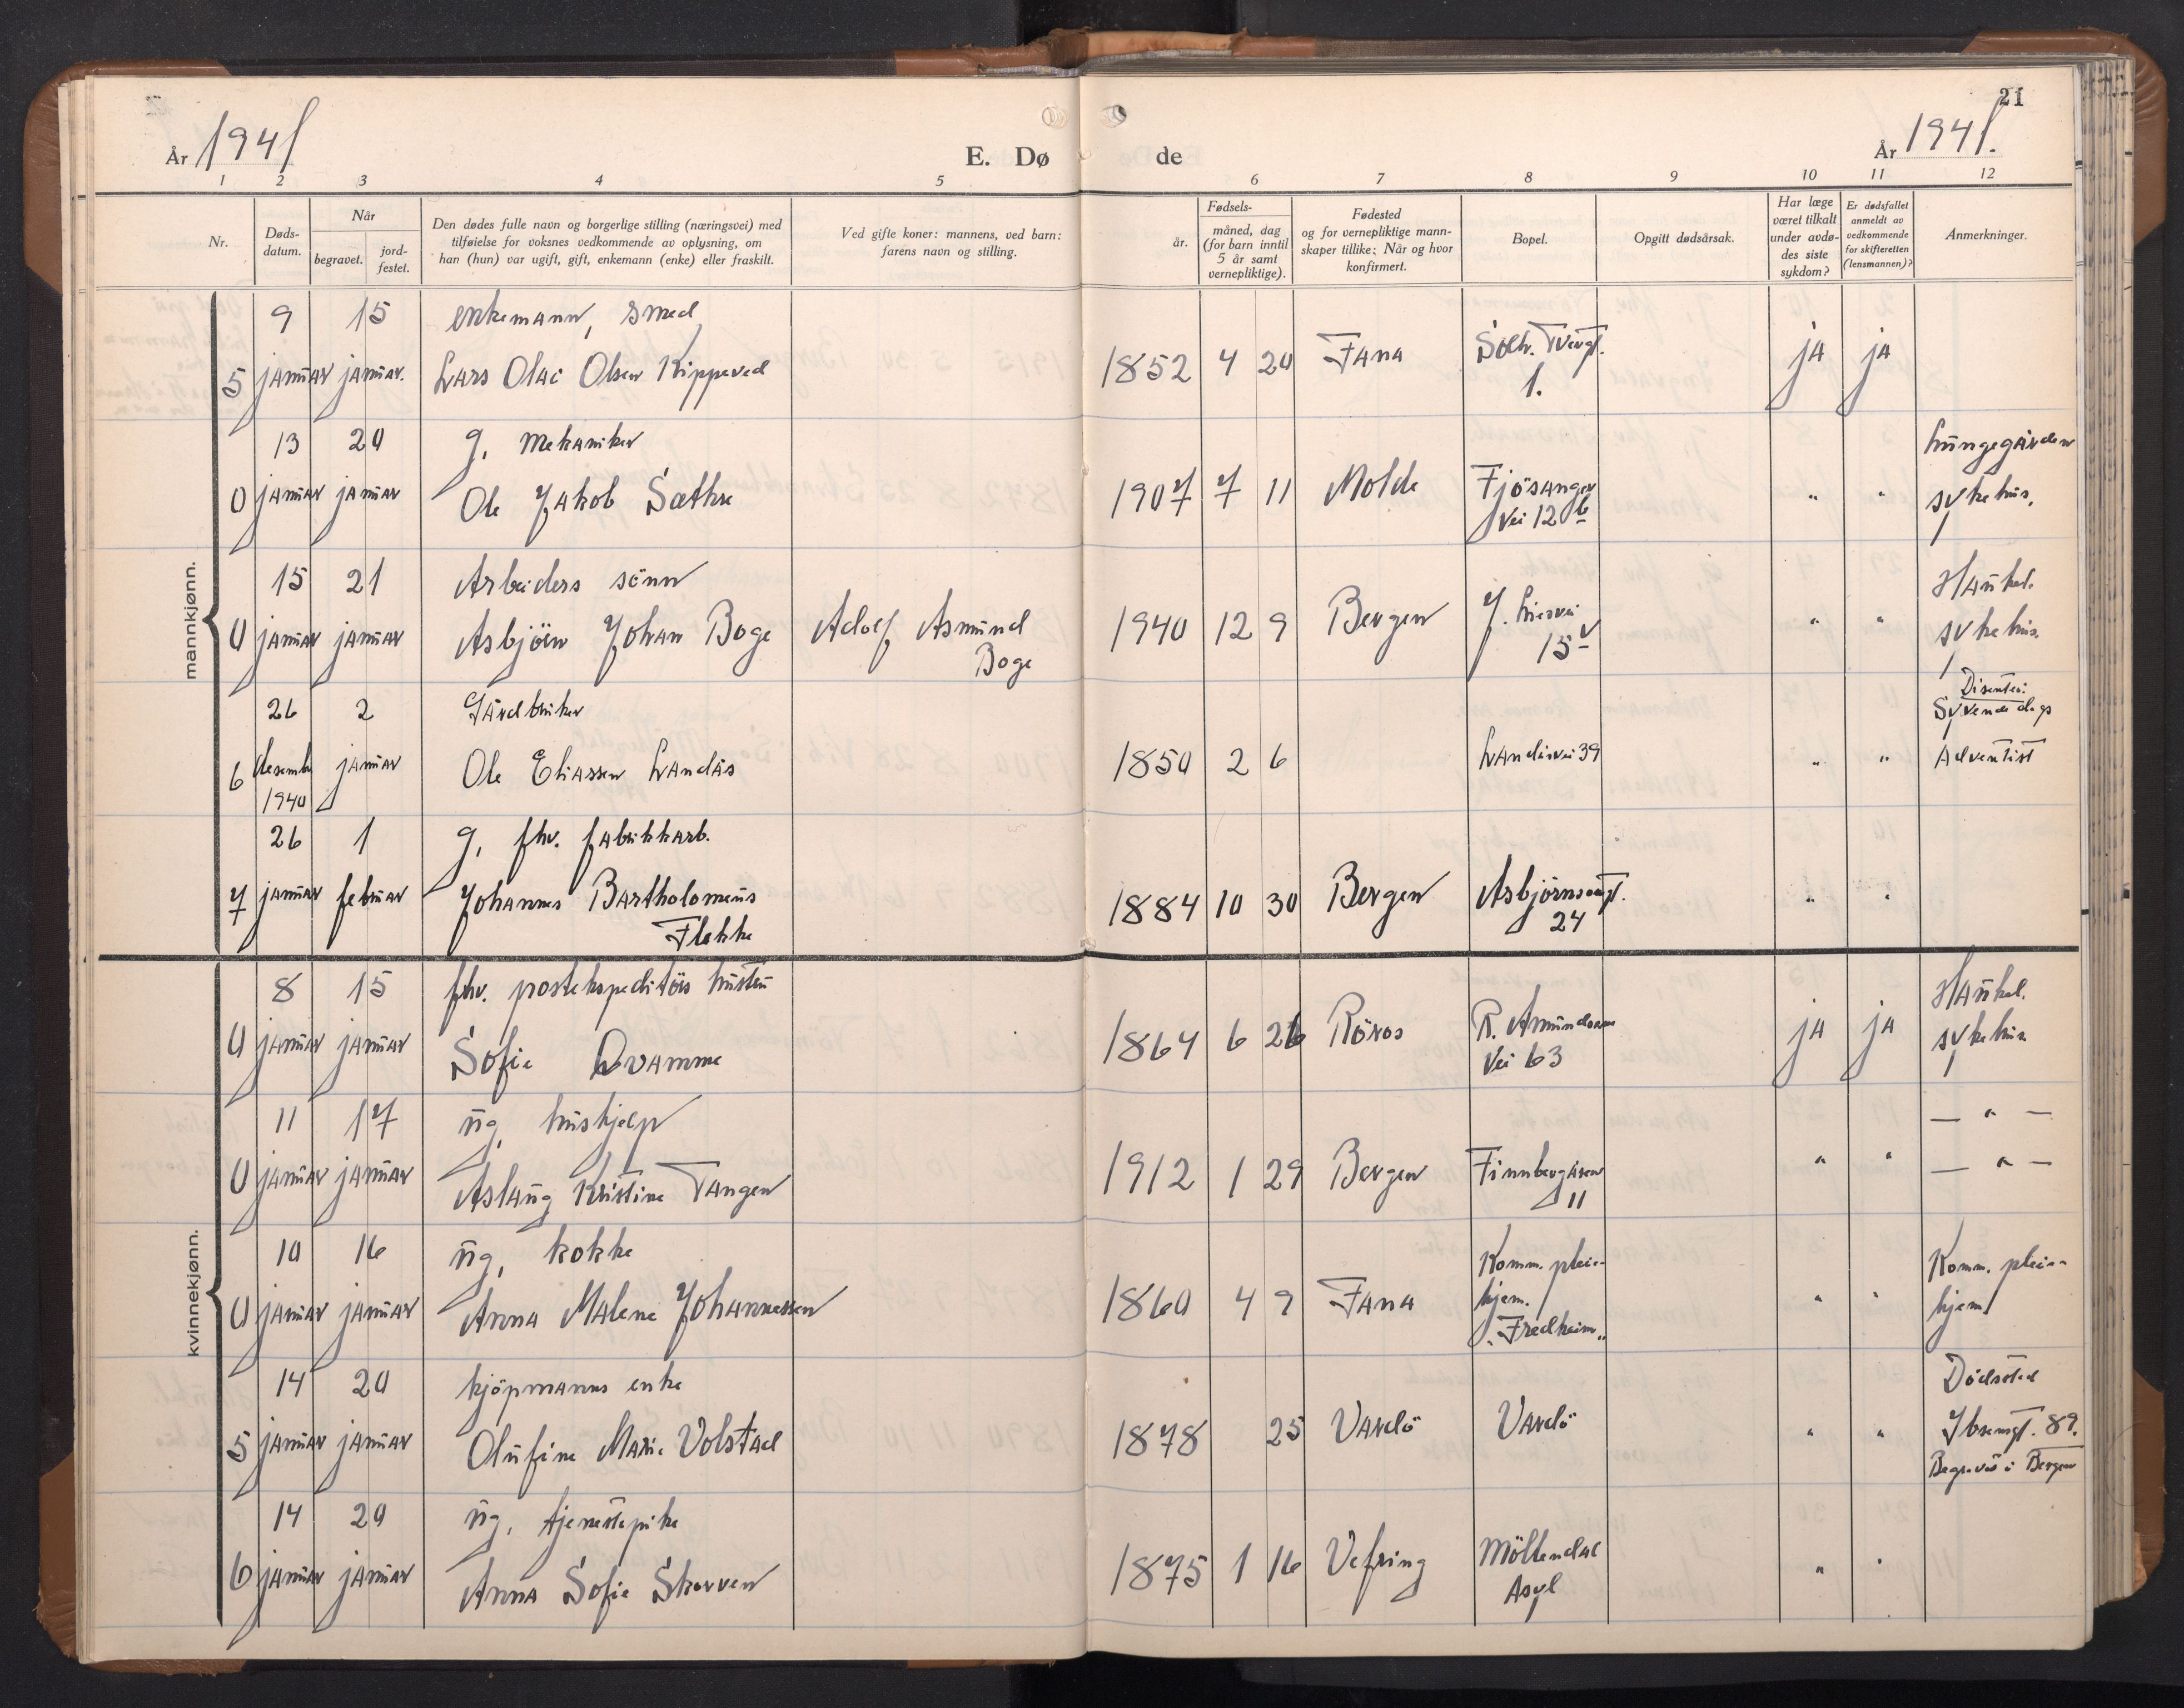 21
År 1941
E. Dø
de
År 1941.
1 2 3 4 5 6 7 8 9 10 11 12
Nr.
Døds-
datum.
Når
begravet.
jord-
festet.
Den dødes fulle navn og borgerlige stilling (næringsvei) med
tilføielse for voksnes vedkommende av oplysning, om
han (hun) var ugift, gift, enkemann (enke) eller fraskilt.
Ved gifte koner: mannens, ved barn:
farens navn og stilling.
Fødsels-
år.
måned, dag
(for barn inntil
5 år samt
vernepliktige).
Fødested
og for vernepliktige mann-
skaper tillike: Når og hvor
konfirmert.
Bopel.
Opgitt dødsårsak.
Har læge
været tilkalt
under avdø-
des siste
sykdom?
Er dødsfallet
anmeldt av
vedkommende
for skifteretten
(lensmannen)?
Anmerkninger.
mannkjønn.
9 15 enkemann, smed
5 januar januar. Lars Olai Olsen Kippeved 1852 4 20 Fana Solh. Tverrgt. ja ja
1.
13 20 g. mekaniker
0 januar januar Ole Jakob Sæthre 1907 7 11 Molde Fjösanger " " Lungegården
vei 12 b sykehus.
15 21 Arbeiders sönn
0 januar januar Asbjörn Johan Boge Adolf Asmund 1940 12 9 Bergen J. Liesvei " " Haukel.
Boge 15 sykehus.
26 2 Gårdbruker Disenter:
Syvende dags
6 desember januar Ole Eliassen Landås 1850 2 6 Landåsvei 39 " " Adventist
1940
26 1 g. fhv. fabrikkarb.
7 januar februar Johannes Bartholomeus 1884 10 30 Bergen Asbjörnsensgt. " "
Flekke 24
kvinnekjønn.
8 15 fhv. postekspeditörs hustru Haukel.
0 januar januar Sofie Qvamme 1864 6 26 Röros R. Amundsens ja ja sykehus
vei 63
11 17 ug. hushjelp — " —
0 januar januar Aslaug Kristine Tangen 1912 1 29 Bergen Finnbergåsen " " — " —
11
10 16 ug. kokke Komm. pleie-
0 januar januar Anna Malene Johannessen 1860 4 9 Fana hjem. " " Komm. pleie-
"Fredheim" hjem
14 20 kjöpmanns enke Dödssted
5 januar januar Olufine Marie Volstad 1878 25 Vardö Vardö " " Ibsensgt. 89.
Begraves i Bergen
14 20 ug. tjenestepike
6 januar januar Anna Sofie Skorven 1875 1 16 Vefring Möllendal " "
Asyl